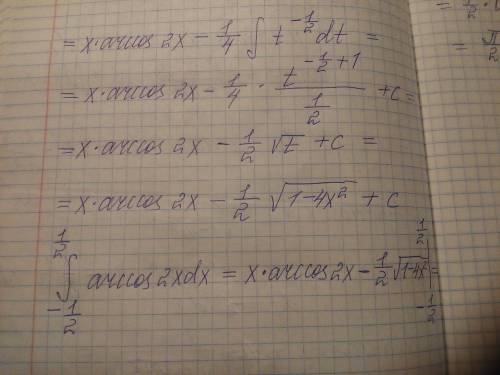 = x·arccos 2x - 1/4 ∫ t^(-1/2) dt =
= x·arccos 2x - 1/4 · t^(-1/2+1) / (1/2) + c =
= x·arccos 2x - 1/2 √t + c =
= x·arccos 2x - 1/2 √(1-4x²) + c
∫_(-1/2)^(1/2) arccos 2x dx = x·arccos 2x - 1/2 √(1-4x²) |_(-1/2)^(1/2) =
= π/2